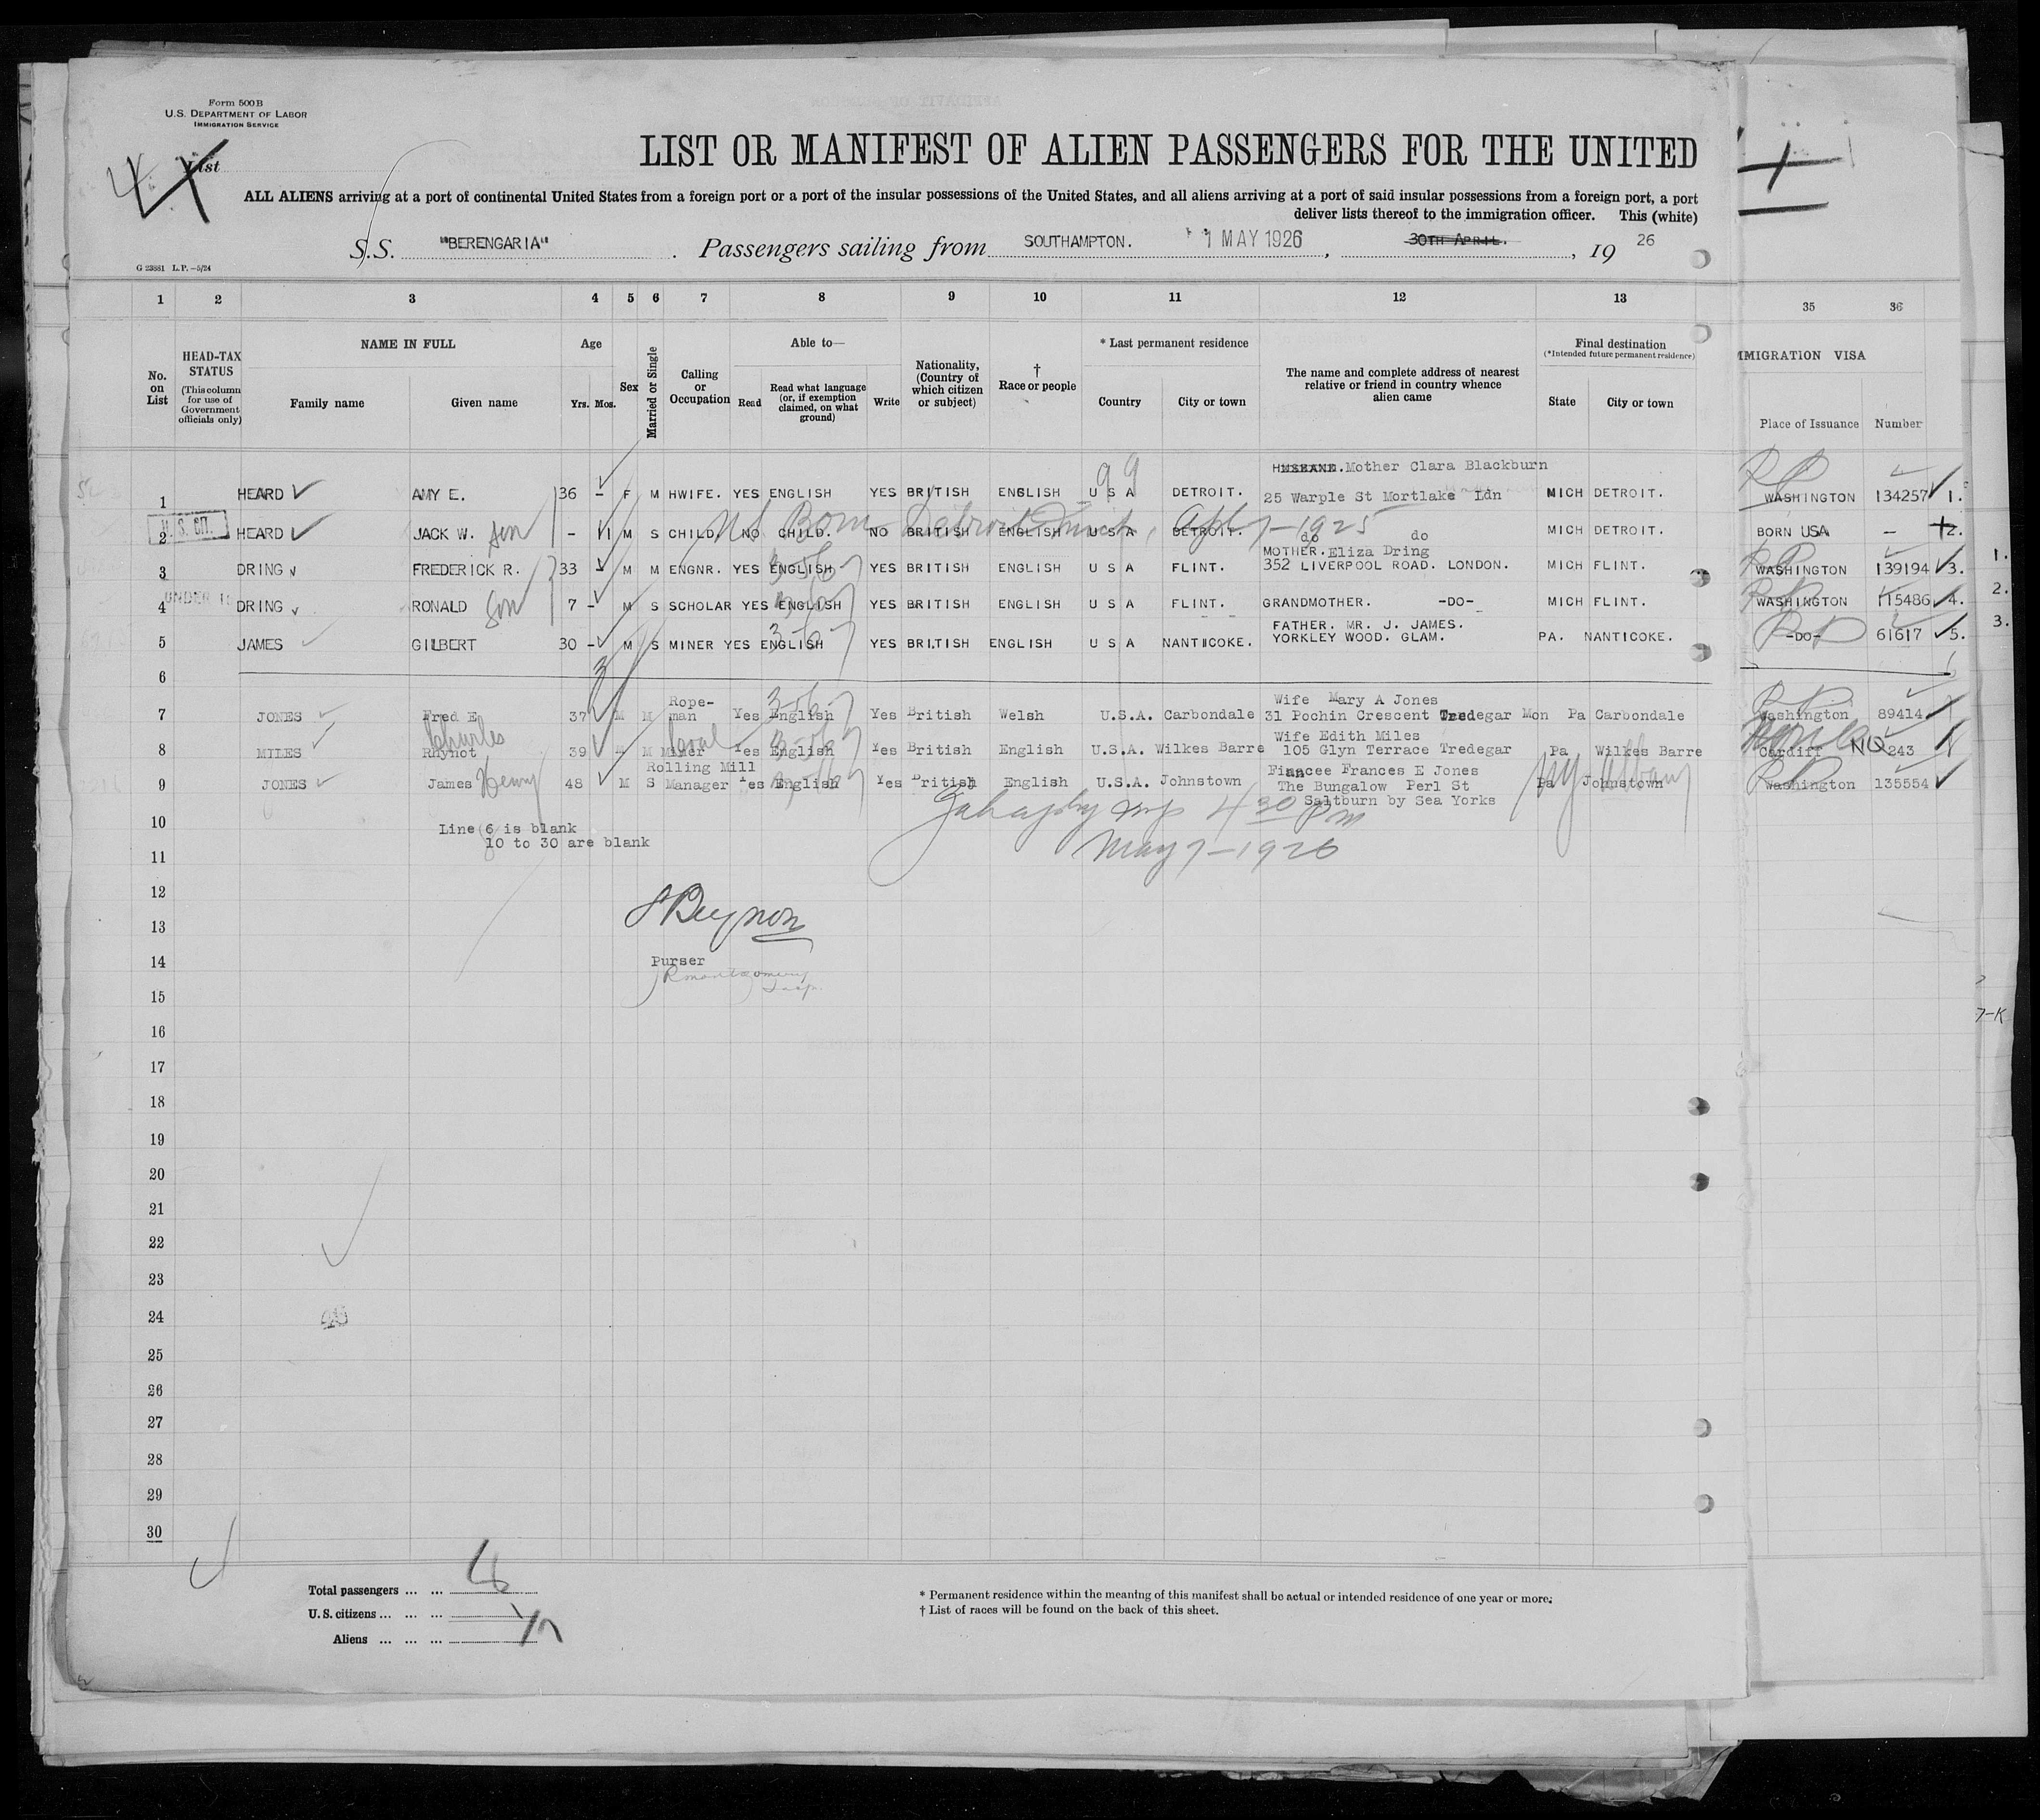 Form 500 B
U.S. DEPARTMENT OF LABOR
IMMIGRATION SERVICE
List
LIST OR MANIFEST OF ALIEN PASSENGERS FOR THE UNITED
ALL ALIENS arriving at a port of continental United States from a foreign port or a port of the insular possessions of the United States, and all aliens arriving at a port of said insular possessions from a foreign port, a port
deliver lists thereof to the immigration officer. This (white)
S.S. "BERENGARIA" . Passengers sailing from SOUTHAMPTON. 1 MAY 1926 , 30TH APRIL. , 19 26
G 23881 L.P.—5/24
1 2 3 4 5 6 7 8 9 10 11 12 13 35 36
No. on List
HEAD-TAX STATUS (This column for use of Government officials only)
NAME IN FULL
Family name Given name
Age
Yrs. Mos.
Sex
Married or Single
Calling or Occupation
Able to—
Read Read what language (or, if exemption claimed, on what ground) Write
Nationality, (Country of which citizen or subject)
† Race or people
* Last permanent residence
Country City or town
The name and complete address of nearest relative or friend in country whence alien came
Final destination
(*Intended future permanent residence)
State City or town
IMMIGRATION VISA
Place of Issuance Number
HUSBAND. Mother Clara Blackburn
1 HEARD AMY E. 36 - F M HWIFE. YES ENGLISH YES BRITISH ENGLISH U S A DETROIT. 25 Warple St Mortlake Ldn MICH DETROIT. WASHINGTON 134257 1.
99
U. S. CIT.
2 HEARD JACK W. son - 11 M S CHILD. NO CHILD. NO BRITISH ENGLISH U S A DETROIT. do do MICH DETROIT. BORN USA - 2.
US Born Detroit Mich, Apl 7-1925
MOTHER. Eliza Dring
3 DRING FREDERICK R. 33 - M M ENGNR. YES ENGLISH YES BRITISH ENGLISH U S A FLINT. 352 LIVERPOOL ROAD. LONDON. MICH FLINT. WASHINGTON 139194 3.
UNDER 16
4 DRING RONALD Son 7 - M S SCHOLAR YES ENGLISH YES BRITISH ENGLISH U S A FLINT. GRANDMOTHER. -DO- MICH FLINT. WASHINGTON 115486 4.
FATHER. MR. J. JAMES.
5 JAMES GILBERT 30 - M S MINER YES ENGLISH YES BRITISH ENGLISH U S A NANTICOKE. YORKLEY WOOD. GLAM. PA. NANTICOKE. -DO- 61617 5.
6
Rope- Wife Mary A Jones
7 JONES Fred E 37 M M man Yes English Yes British Welsh U.S.A. Carbondale 31 Pochin Crescent Tredegar Mon Pa Carbondale Washington 89414
Charles Wife Edith Miles
8 MILES Rhynot 39 M M Miner Yes English Yes British English U.S.A. Wilkes Barre 105 Glyn Terrace Tredegar Pa Wilkes Barre Cardiff NQ 243
Rolling Mill Fiancee Frances E Jones
9 JONES James Henry 48 M S Manager Yes English Yes British English U.S.A. Johnstown The Bungalow Perl St Pa Johnstown Washington 135554
NY Albany
Saltburn by Sea Yorks
10
Line 6 is blank
10 to 30 are blank
4 30 Pm
May 7-1926
11
12
13
14
Purser
R Montgomery
Insp.
15
16
17
18
19
20
21
22
23
24
25
26
27
28
29
30
Total passengers ... ...
U. S. citizens ... ... ...
Aliens ... ... ...
* Permanent residence within the meaning of this manifest shall be actual or intended residence of one year or more.
† List of races will be found on the back of this sheet.
1.
2.
3.
7-K